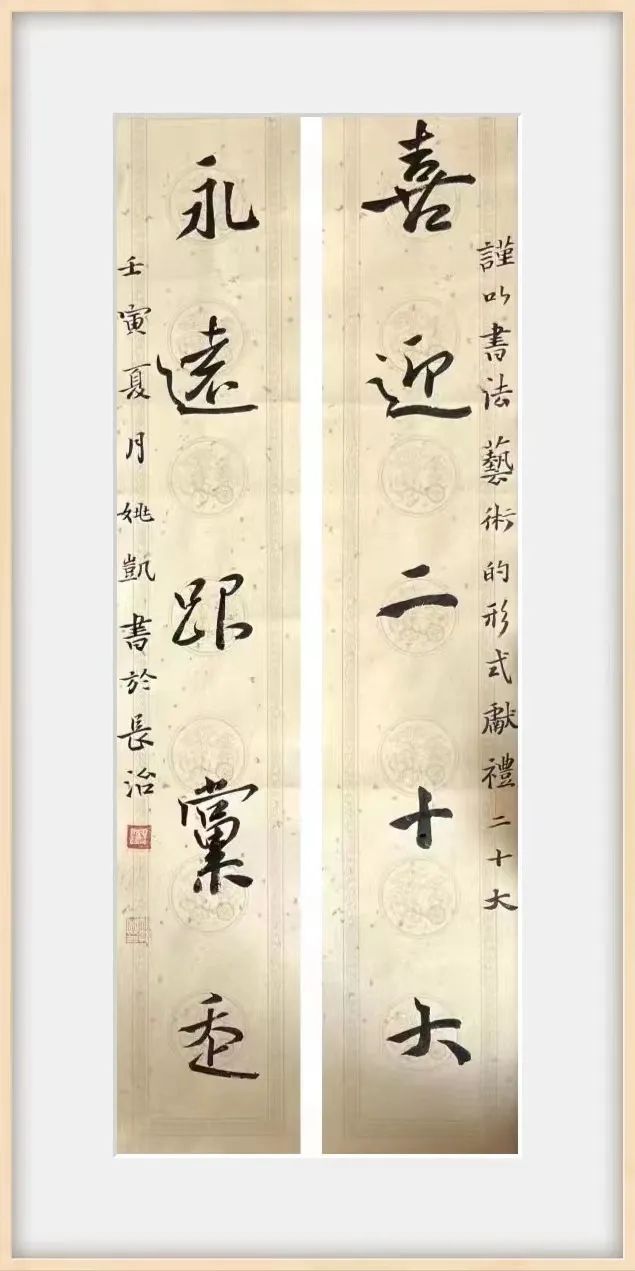 謹以書法藝術的形式獻禮二十大
喜迎二十大
永遠跟黨走
壬寅夏月姚凱書於長治